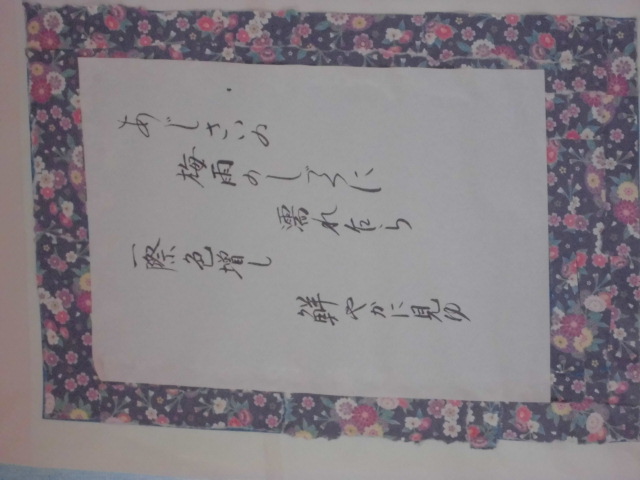 あじさいの
梅雨のしずくに
濡れ乍ら
一際色増し
鮮やかに見ゆ